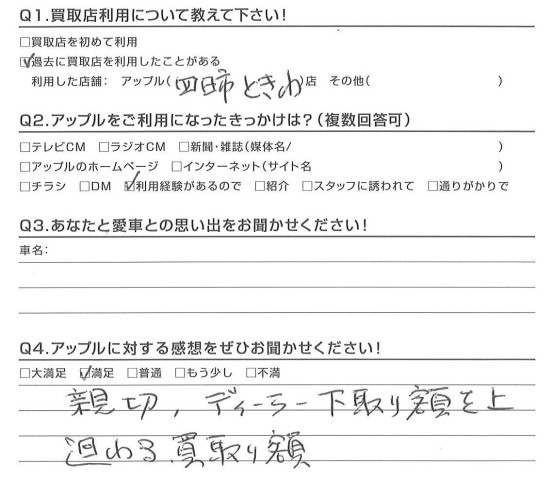 Q1.買取店利用について教えて下さい！
□買取店を初めて利用
☑過去に買取店を利用したことがある
利用した店舗： アップル(四日市ときわ)店 その他( )
Q2.アップルをご利用になったきっかけは？(複数回答可)
□テレビCM □ラジオCM □新聞・雑誌(媒体名/ )
□アップルのホームページ □インターネット(サイト名 )
□チラシ □DM ☑利用経験があるので □紹介 □スタッフに誘われて □通りがかりで
Q3.あなたと愛車との思い出をお聞かせください！
車名：
Q4.アップルに対する感想をぜひお聞かせください！
□大満足 ☑満足 □普通 □もう少し □不満
親切，ディーラー下取り額を上
廻わる買取り額